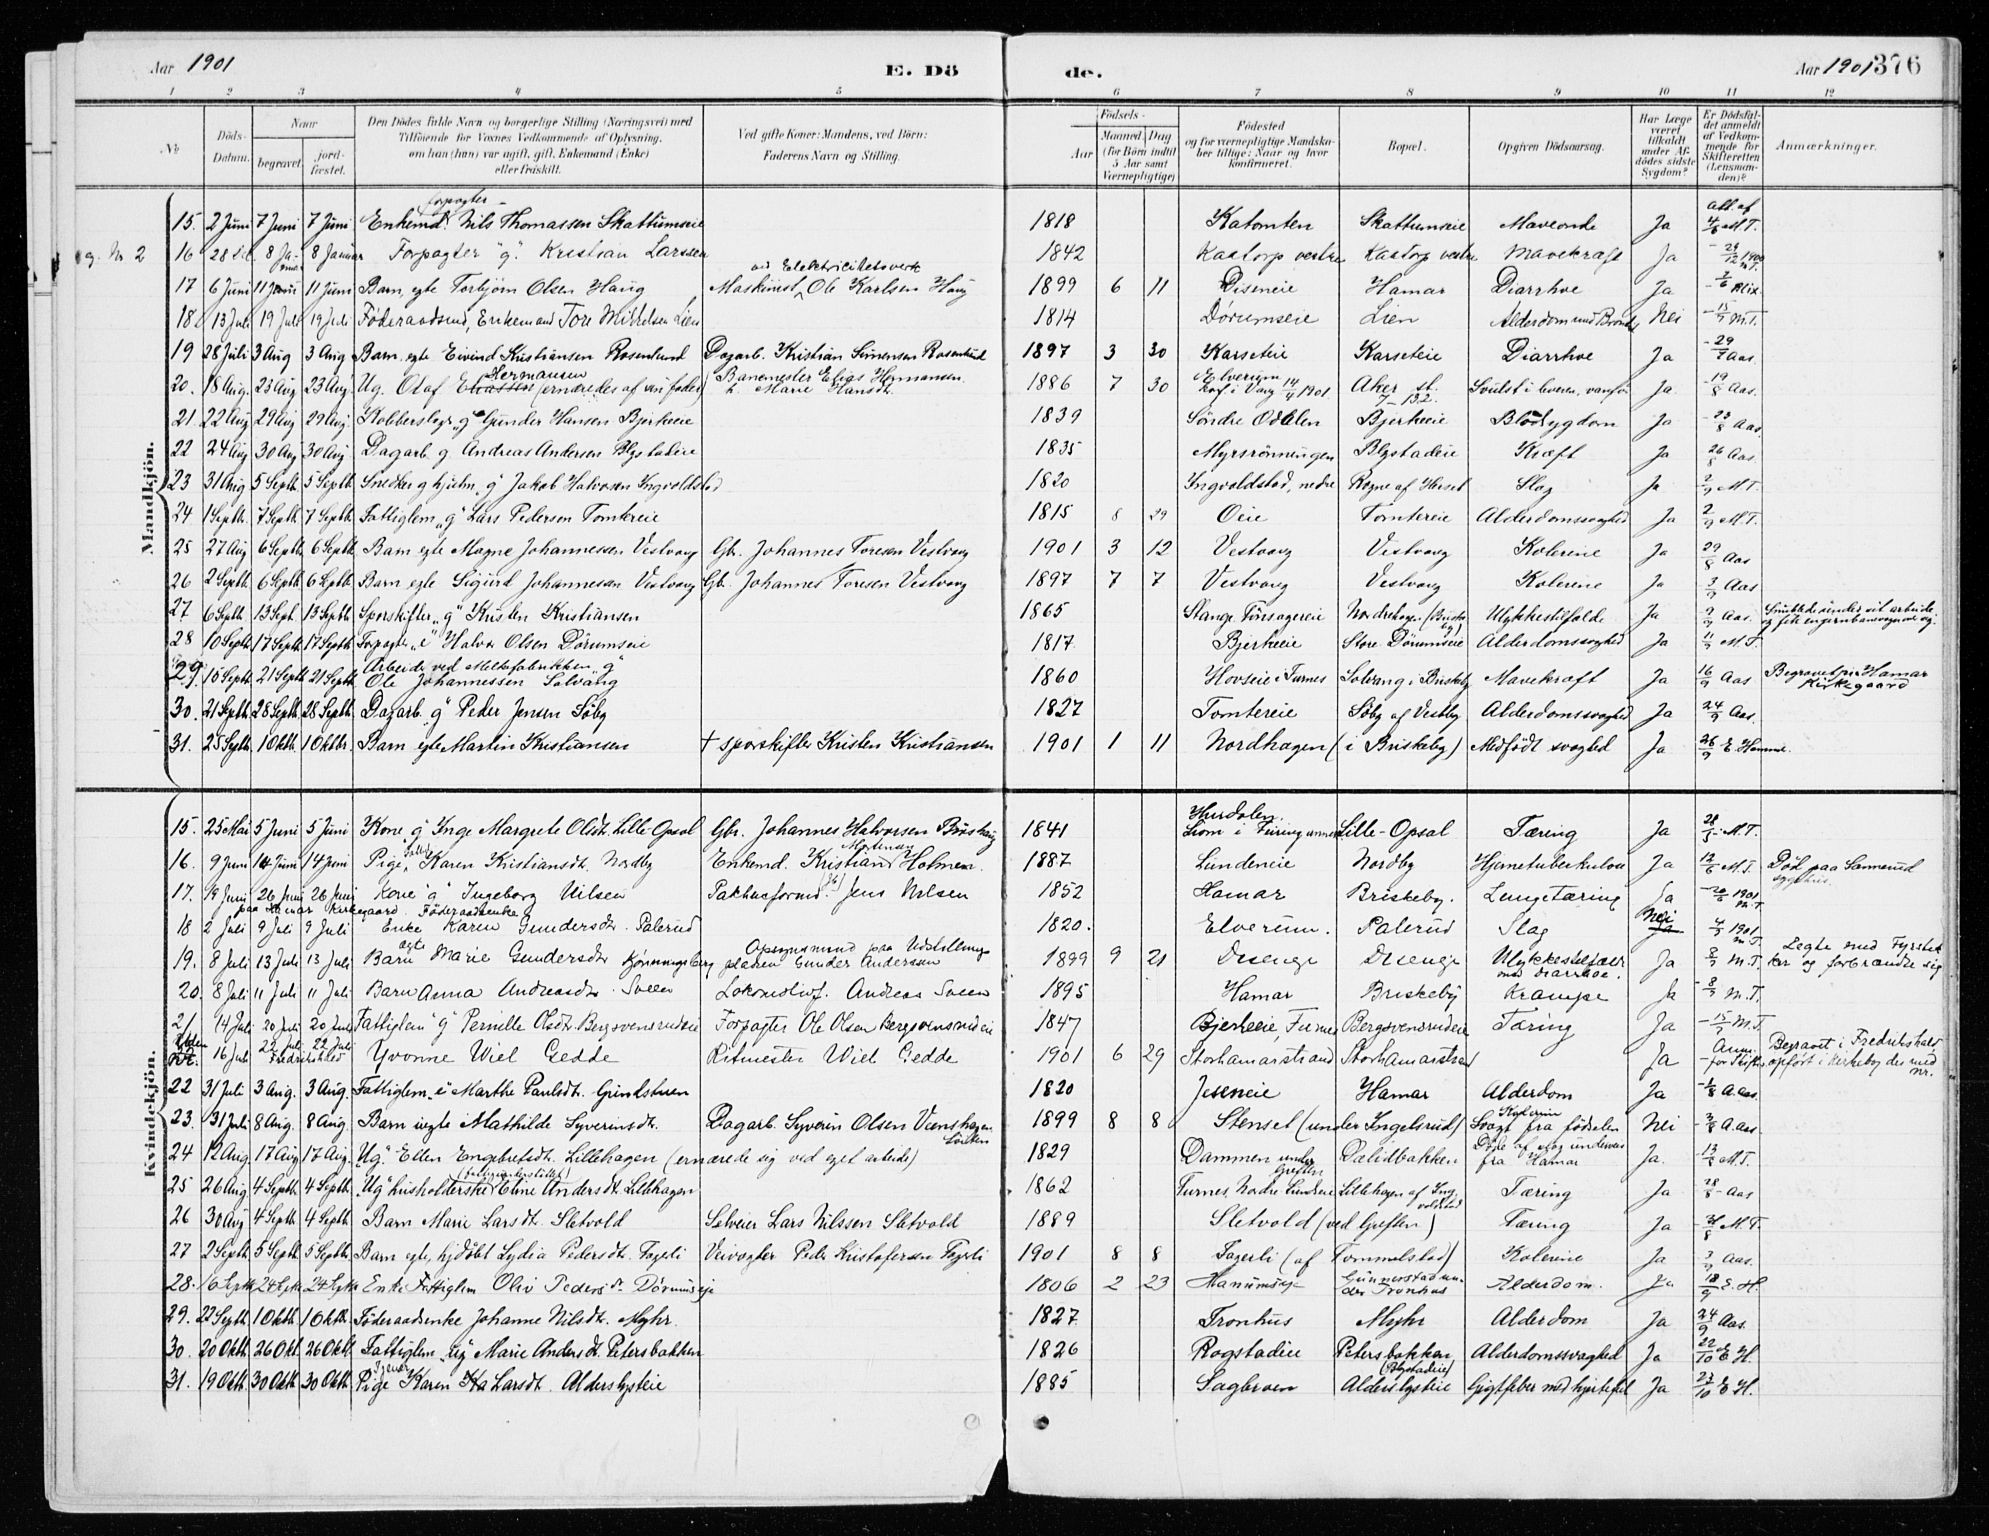 Aar 1901 E. Dö de. Aar 1901 376
1 2 3 4 5 6 7 8 9 10 11 12
No Döds-Datum. Naar begravet. jordfæstet. Den Dödes fulde Navn og borgerlige Stilling (Næringsvei) med Tilföiende for Voxnes Vedkommende af Oplysning, om han (hun) var ugift, gift, Enkemand (Enke) eller fraskilt. Ved gifte Koner: Mandens, ved Börn: Faderens Navn og Stilling. Födsels- Aar Maaned Dag (for Börn indtil 5 Aar samt Værnepligtige) Födested og for værnepligtige Mandskaber tillige: Naar og hvor konfirmeret. Bopæl. Opgiven Dödsaarsag. Har Læge været tilkaldt under Afdödes sidste Sygdom? Er Dödsfaldet anmeldt af Vedkommende for Skifteretten (Lensmanden)? Anmærkninger.
Mandkjön.
15. 2 Juni 7 Juni 7 Juni Enkemd. forpagter Nils Thomassen Skattumseie 1818 Katomten Skattumseie Maveonde Ja att. af 4/6 M.T.
g. Nr 2 16 28 8 Ja- 8 Januar Forpagter "g". Kristian Larssen 1842 Kaatorp vestre Kaatorp vestre Mavekræft Ja 1900
17 6 Juni 11 Juni 11 Juni Barn, egte Torbjørn Olsen Haug Maskinist ved Elektricitetsverk Ole Karlsen Haug 1899 6 11 Diseneie Hamar Diarrhoe Ja
18. 13 Juli 19 Juli 19 Juli Föderaadsmd, Enkemand Tore Mikkelsen Lien 1814 Dørumseie Lien Alderdom med Nei 15/7 M.T.
19 28 Juli 3 Aug 3 Aug Barn, egte Eivind Kristiansen Rosenlund Dagarb. Kristian Simensen Rosenlund 1897 3 30 Karseteie Karseteie Diarrhoe Ja 29/7 Aas.
20. 18 Aug. 23 Aug 23 Aug Ug. Olaf Hermansen (ernæredes af sin fader) Banemester Elias Hermansen. h. Marie Hansdt. 1886 7 30 Elverum Konf. i Vang 14/4 1901 Aker Svulst i leveren, Ja. 19/8 Aas.
21. 22 Aug 29 Aug 29 Aug. Kobberslagr. "g" Gunder Hansen Bjerkeeie 1839 Søndre Odalen Bjerkeeie Blodsygdom Ja 23/8 Aas.
22 24 Aug 30 Aug 30 Aug. Dagarb g Andreas Andersen Blystadeie 1835 Myrsrönningen Blystadeie Kræft Ja 26/8 Aas.
23 31 Aug 5 Septb. 5 Septb. Snedker "g" Jakob Halvorsen Ingvoldstad 1820 Ingvoldstad, nedre Rogne af Hirset Slag Ja 2/9 M.T.
24 1 Septb. 7 Septb. 7 Septb. Fattiglem "g" Lars Pedersen Tomtereie 1815 8 29 Oeie Tomtereie Alderdomssvaghed Ja 2/9 M.T.
25 27 Aug 6 Septb. 6 Septb. Barn egte Magne Johannessen Vestvang Gb. Johannes Toresen Vestvang 1901 3 12 Vestvang Vestvang Kolerine Ja 29/8 Aas
26 2 Septb. 6 Septb. 6 Septb. Barn egte Sigurd Johannesen Vestvang Gb. Johannes Toresen Vestvang 1897 7 7 Vestvang Vestvang Kolerine Ja 3/9 Aas
27 6 Septb 13 Sept. 13 Septb. Sporskifter "g" Kristen Kristiansen 1865 Stange Nordrehagen (Briskeby) Ulykkestilfælde Ja 9/9 Aas. Snublede under sit arbeide og fik en jernbanevogn over sig.
28 10 Septb 17 Septb. 17 Septb. Forpagter "e" Halvor Olsen Dörumseie 1817. Bjerkeeie Store Dörumseie Alderdomssvaghed Ja 11/9 M.T.
29. 15 Septb. 21 Septb. 21 Septb. Arbeider ved Meltefabrikken "g" Ole Johannessen Solvang 1860 Hovseie i Furnes Solvang i Briskeby Mavekræft Ja 16/9 Aas Begravet paa Hamar Kirkegaard
30. 21 Septb. 28 Septb. 28 Septb. Dagarb. "g" Peder Jensen Söby 1827 Tomtereie Söby af Vestby Alderdomssvaghed Ja 24/9 Aas.
31. 25 Septb. 1 Oktb. 1 Oktbr. Barn egte Martin Kristiansen + sporskifter Kristen Kristiansen 1901 1 11 Nordhagen (i Briskeby) Medfödt svaghed Ja 26/9 E. Hamme.
Kvindekjön.
15. 25 Mai 5 Juni 5 Juni Kone "g" Inge Margrete Olsdt. Lille-Opsal Gbr. Johannes Halvorsen 1841 Hurdalen. Lille-Opsal Tæring Ja 28/5 M.T.
16. 9 Juni 14 Juni 14 Juni Pige, Karen Kristiansdt. Nordby Enkemd. Kristian Mortensen Holmen 1887 Lundeneie Nordby Hjernetuberkulose Ja 12/6 M.T. Död paa Sanerud sygehus.
17. 19 Juni 26 Juni 26 Juni paa Hamar kirkegaard Kone "g" Ingeborg Nilsen Pakhusformd. Jens Nilsen 1852 Hamar Briskeby. Lungetæring Ja 20/6 1901 M.T.
18 2 Juli 9 Juli 9 Juli Föderaadsenke Enke Karen Gundersdt. Palerud 1820. Elverum. Palerud Slag Nei Ja 4/7 1901 M.T.
19. 8 Juli 13 Juli 13 Juli Barn egte Marie Gundersdtr Kjonnungsberg Opsynsmand paa Udstillingspladsen Gunder Andersen 1899 9 21 Disenge Disenge Ulykkestilfælde med diarrhoe. Ja 8/7 M.T. Legte med Fyrstikker og forbrændte sig
20. 8 Juli 11 Juli 11 Juli Barn Anna Andreasdtr. Sveen Lokomotivf. Andreas Sveen 1895 Hamar Briskeby Krampe Ja 8/7 M.T.
21 14 Juli 20 Juli 20 Juli Fattiglem "g" Pernille Olsdt. Bergsvensrudeie Forpagter Ole Olsen Bergsvensrudeie 1847 Bjerkeeie, Furnes Bergsvensrudeie Tæring Ja 15/7 M.T.
Uden Nr. 16 Juli 22 Juli 22 Juli Fredrikshald Yvonne Wiel Gedde Ritmester Wiel Gedde 1901 6 29 Storhamarstrand Storhamarstrand Ja Anm. for Skifter Begravet i Fredrikshald opført i kirkebog der med nr.
22 31 Juli 3 Aug. 3 Aug. Fattiglem "e" Marthe Paulsdt. Grindstuen 1820 Jeseneie Hamar Alderdom Ja 1/8 A. Aas.
23. 31 Juli 8 Aug. 8 Aug. Barn uegte Mathilde Syverinsdt. Dagarb. Syverin Olsen Veenshagen 1899 8 8 Stenset (under Ingelsrud) Kolerine Svagt fra fødselen Nei 2/8 A. Aas.
24 12 Aug. 17 Aug 17 Aug. "Ug." Ellen Engebretsdt. Lillehagen (ernærede sig ved eget arbeide) 1829 Dammen under Greften Dælidbakken Døde af slag underveis fra Hamar Ja. 13/8 M.T.
25 26 Aug. 4 Septb. 4 Septb. "Ug" husholderske (fattigunderstöttet) Eline Andersdt. Lillehagen 1862 Furnes, Nordre Lundeie Lillehagen af Ingvoldstad Tæring Ja 28/8 Aas
26 30 Aug 4 Septb. 4 Septb. Barn Marie Larsdt. Sletvold Selveier Lars Nilssen Sletvold 1889 Sletvold (ved Greften) Tæring Ja 31/8 M.T.
27 2 Septb. 5 Septb. 5 Septb. Barn egte, hjdöbt Lydia Pedersdt. Fagerli Veivogter Peder Kristofersen Fagerli 1901 8 8 Fagerli (af Tommelstad) Kolerine Ja 3/9 Aas.
28. 16 Septb 24 Septb 24 Septb Enke Fattiglem Olivi Pedersdt. Dörumseie 1806 2 23 Hanumseie Gunnerstad under Tronhus Alderdom. Ja 18/9 E.H.
29. 22 Septb. 1 Oktb. 1 Oktb. Föderaadsenke Johanne Nilsdt. Myhr. 1827 Tronhus Myhr Alderdom Ja 24/9 Aas.
30. 20 Oktb. 26 Okt. 26 Oktb Fattiglem "ug" Marie Andersdt. Petersbakken 1826 Rogstadeie Petersbakken (Blystadeie) Alderdomssvaghed Ja 22/10 E H.
31. 19 Oktb. 30 Oktb. 30 Oktb. Tjener Pige Karen Larsdt. Alderslysteie 1885 Sagbroen Alderslysteie Gigtfeber med hjertefeil Ja 23/10 E H.